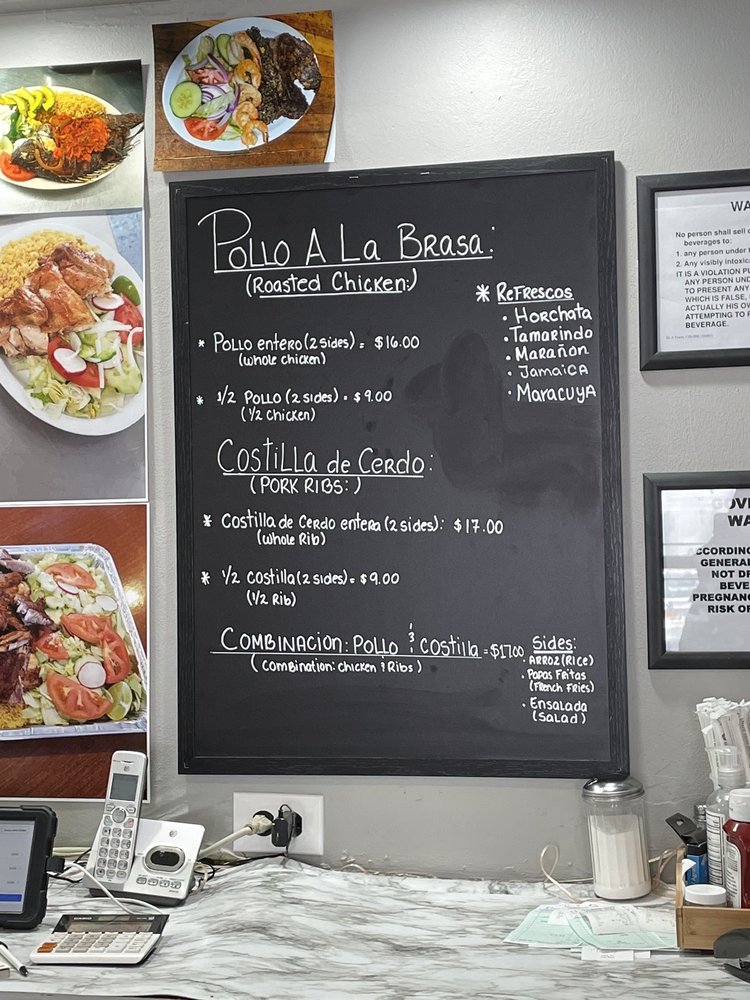 POLLO A La BRASA:
(ROASTED CHICKEN:)
* ReFRESCOS
• HORCHATA
• TAMARINDO
• MARAÑON
• JAMAICA
• MARACUYA
* POLLO entero (2 sides) = $16.00
(whole chicken)
* 1/2 POLLO (2 sides) = $9.00
(1/2 chicken)
COSTILLA de CERDO:
(PORK RIBS:)
* COSTILLA de CERDO entera (2 sides): $17.00
(whole Rib)
* 1/2 COSTILLA (2 sides) = $9.00
(1/2 Rib)
COMBINACION: POLLO & COSTILLA = $17.00
(COMBINATION: CHICKEN & RIBS)
Sides:
• ARROZ (RICE)
• PAPAS FRITAS
(FRENCH FRIES)
• ENSALADA
(SALAD)
WA
No person shall sell
beverages to:
1. any person under
2. Any visibly intoxic
IT IS A VIOLATION PU
ANY PERSON UND
TO PRESENT ANY
WHICH IS FALSE,
ACTUALLY HIS OW
ATTEMPTING TO P
BEVERAGE.
GOVE
WA
CCORDING
GENERAL
NOT DR
BEVE
PREGNANC
RISK OF